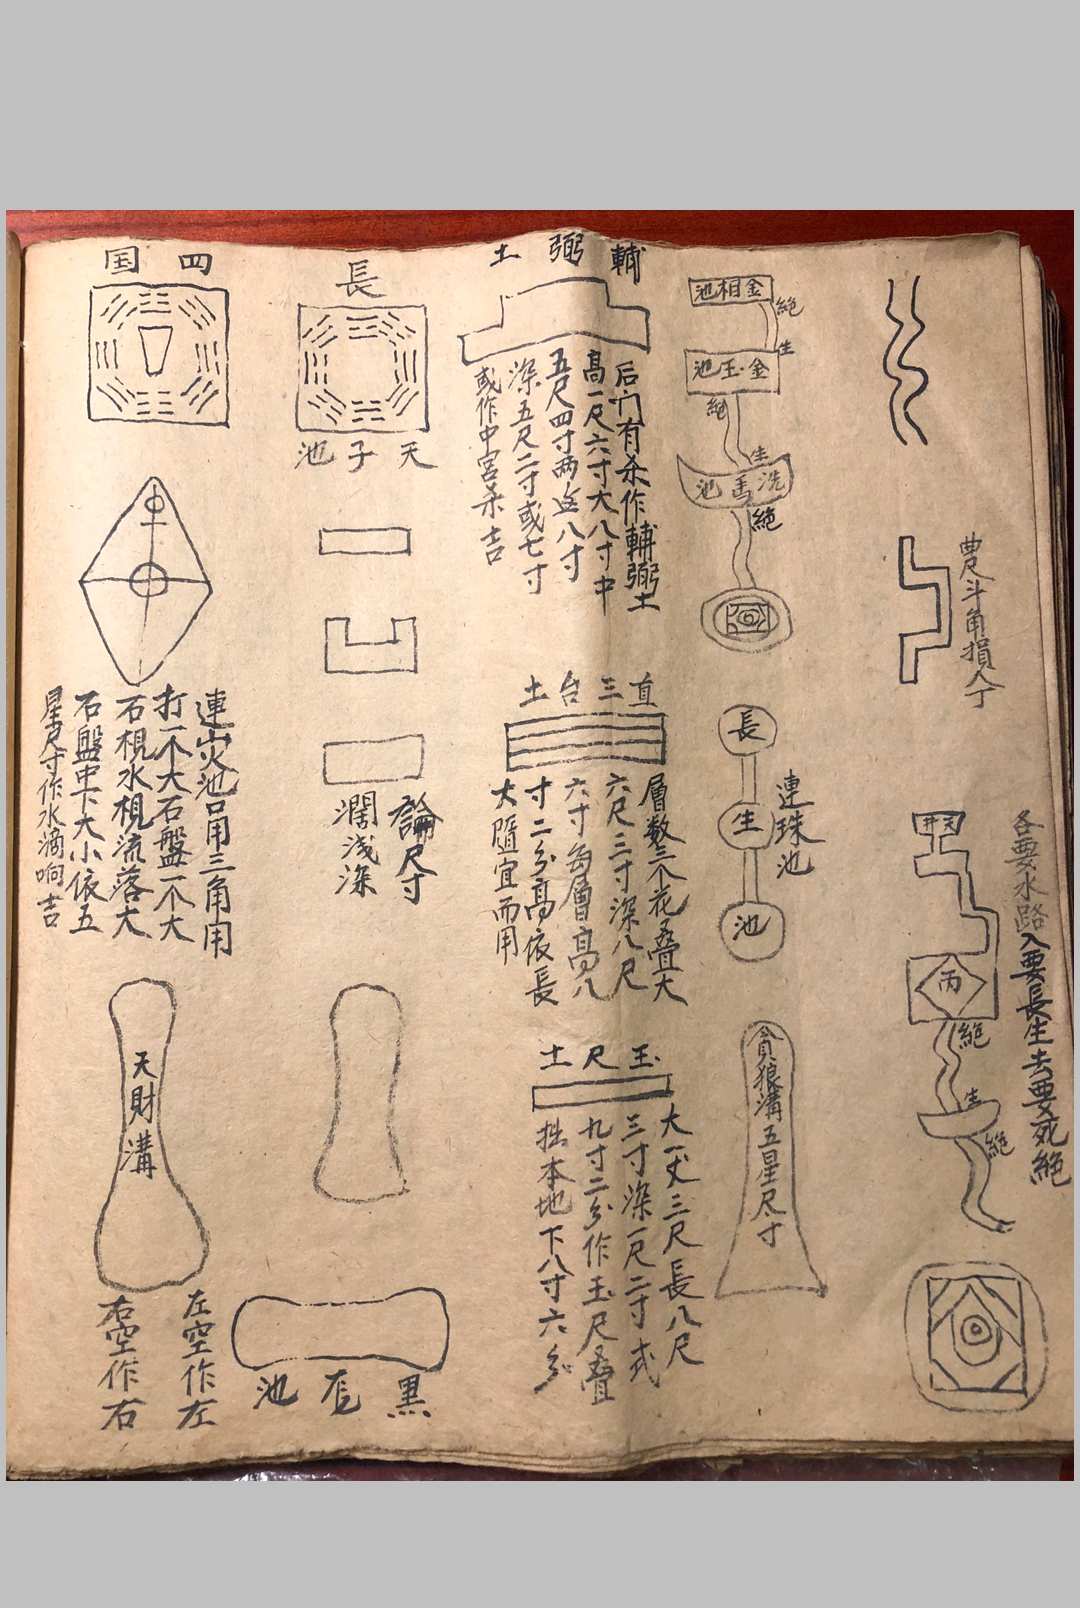 曲尺斗角損人丁
天井
各要水路入要長生去要死絕
丙
絕
生
絕
金相池
絕
生
金玉池
絕
生
洗馬池
絕
連珠池
長
生
池
貪狼溝五星尺寸
輔弼土
后門有杀作輔弼土
高一尺六寸大八寸中
五尺四寸两边八寸
深五尺二寸或七寸
或作中宮杀吉
直三台土
層数三个花叠大
六尺三寸深八尺
六寸每層高八
寸二分高依長
大隨宜而用
玉尺土
大一丈三尺長八尺
三寸深一尺二寸式
九寸二分作玉尺叠
拙本地下八寸六分
長
天子池
論尺寸
濶浅深
黑池
四国
連災池口用三角用
打一个大石盤一个大
石梘水梘流落大
石盤中下大小依五
星尺寸作水滴响吉
天財溝
左空作左
右空作右